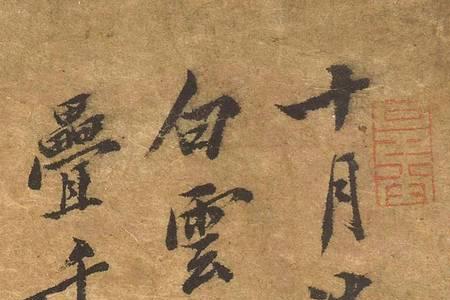 十月
白雲
疊千